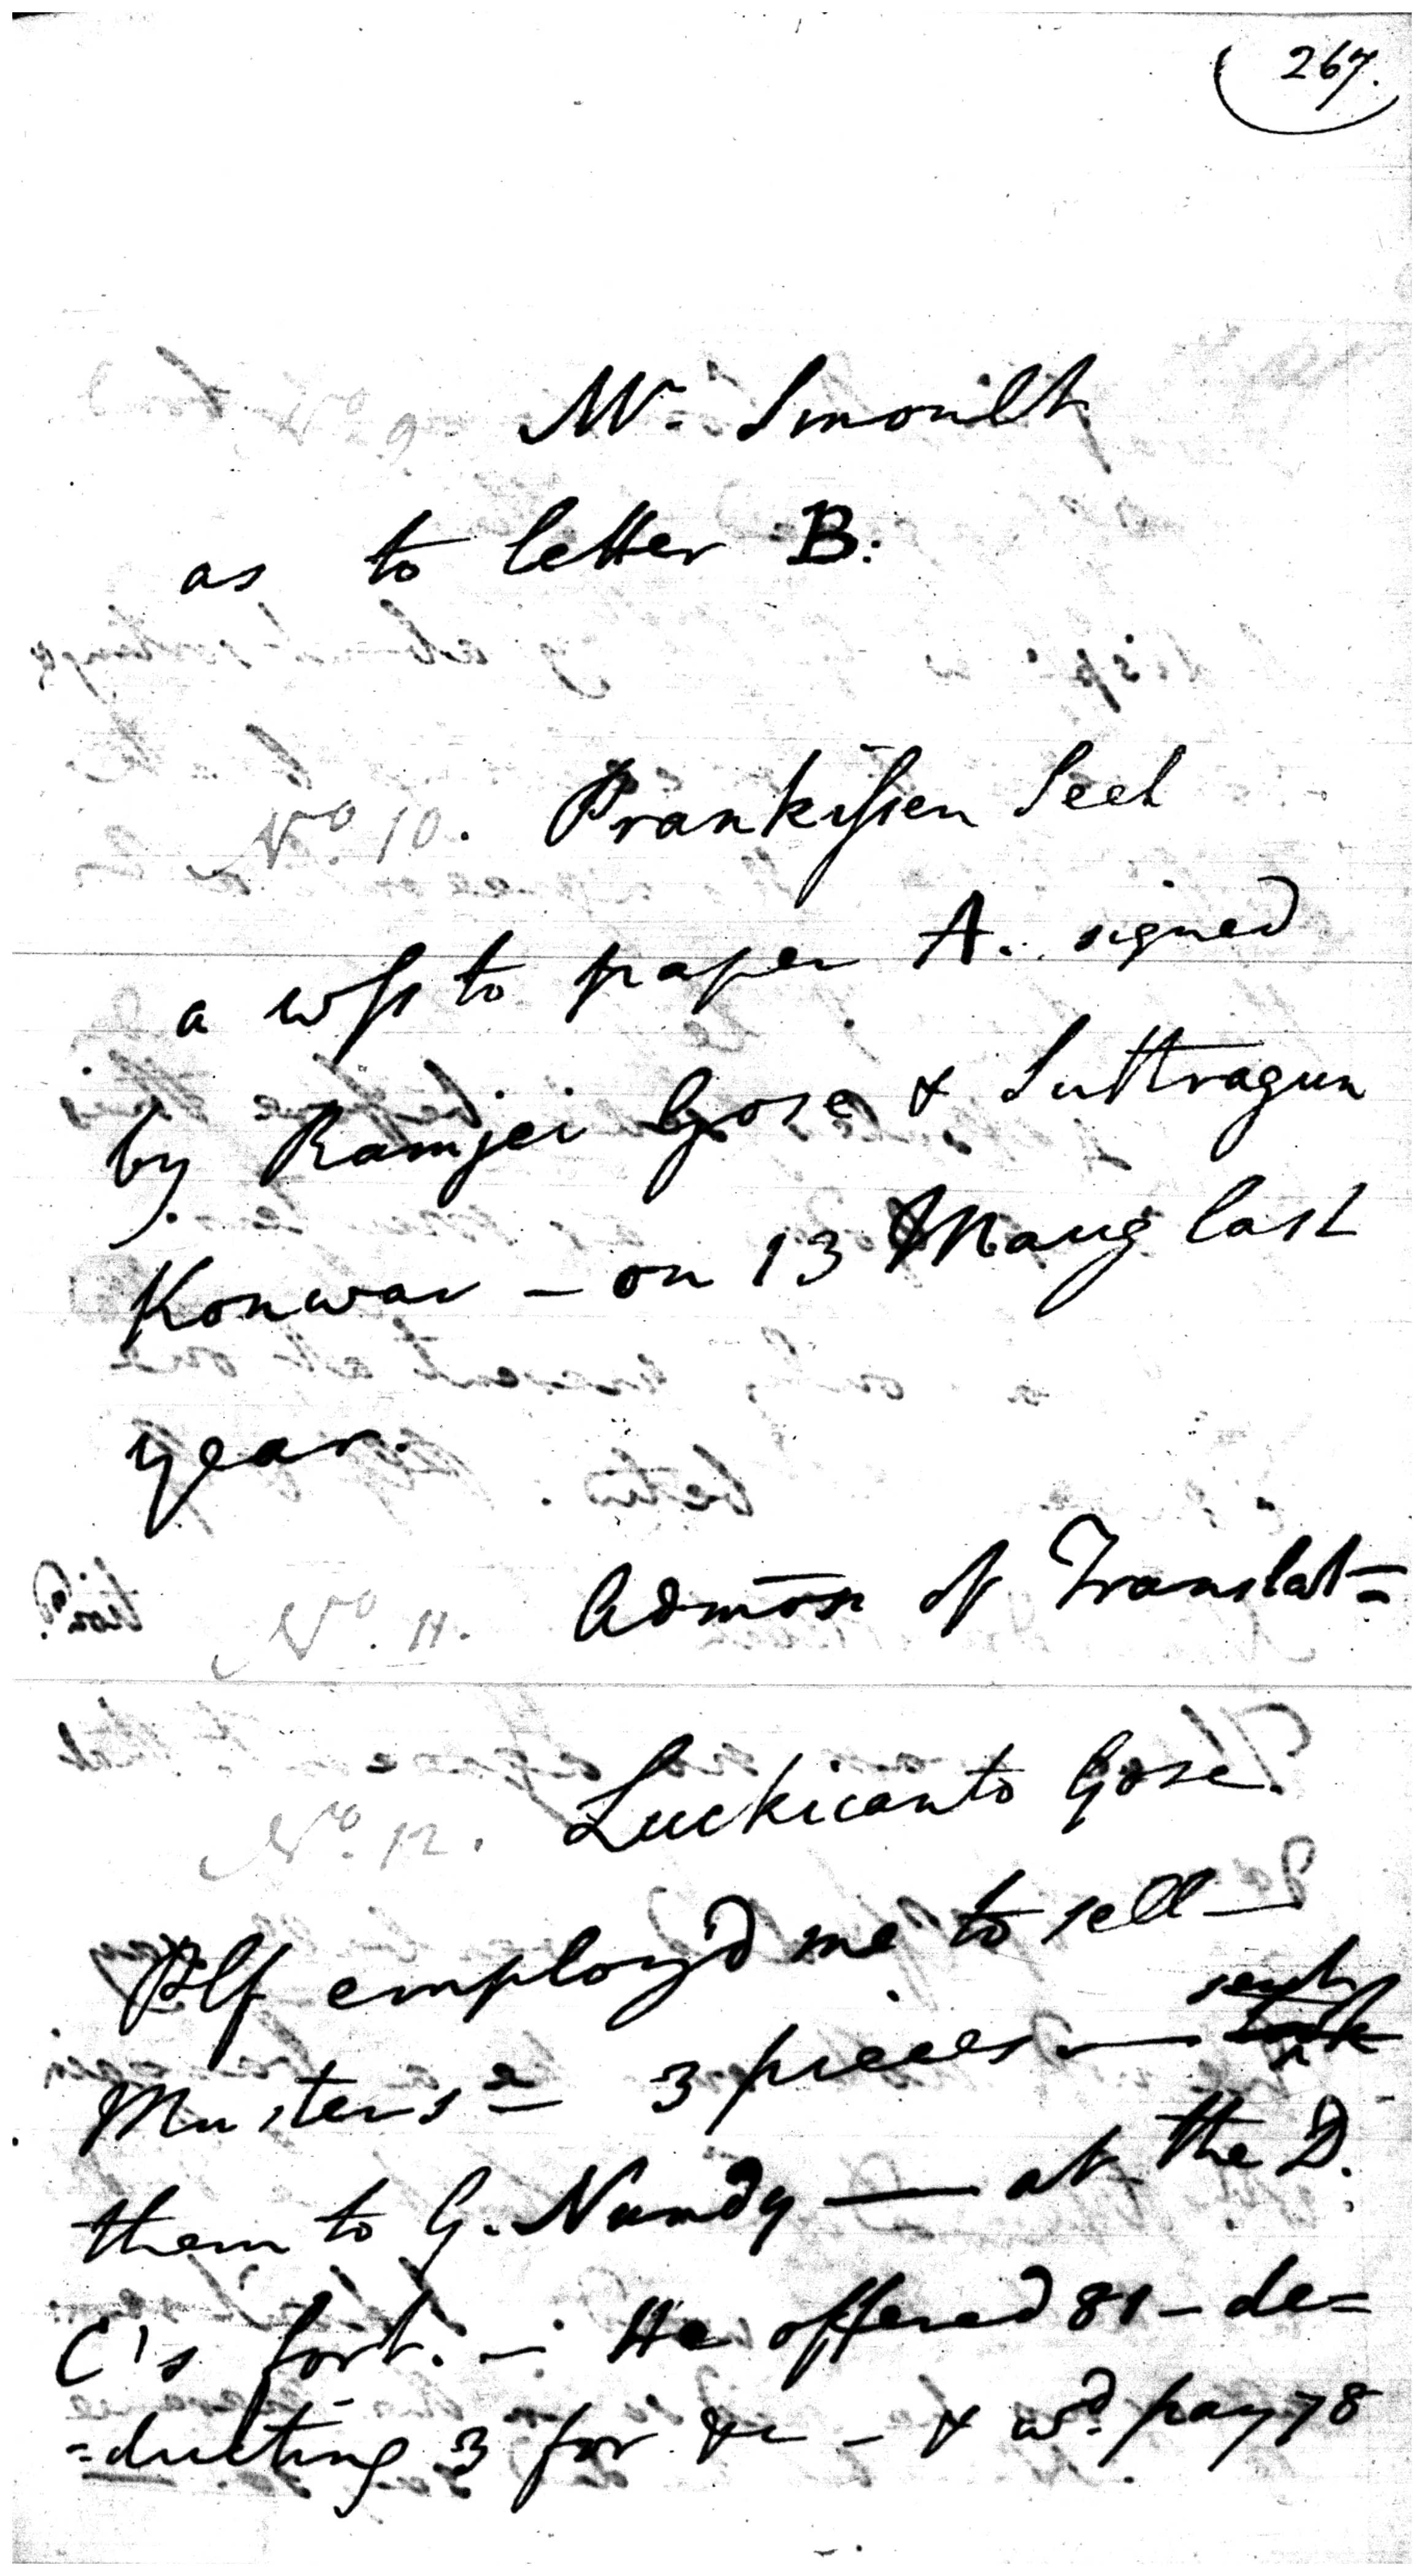 267.
Mr. Smoult
as to letter B:
No. 10. Prankissen Seel
a wss to paper A. signed
by Ramjei Gose & Suttragun
Konwar - on 13 Maug last
year.
No. 11. Admon of Translat=
No. 12. Luckicanto Gose
Plf employ'd me to sell
Musters = 3 pieces - sent
them to G. Nundy - at the D.
C's fort. - He offered 81 - de=
=ducting 3 for &c - & wd. pay 78